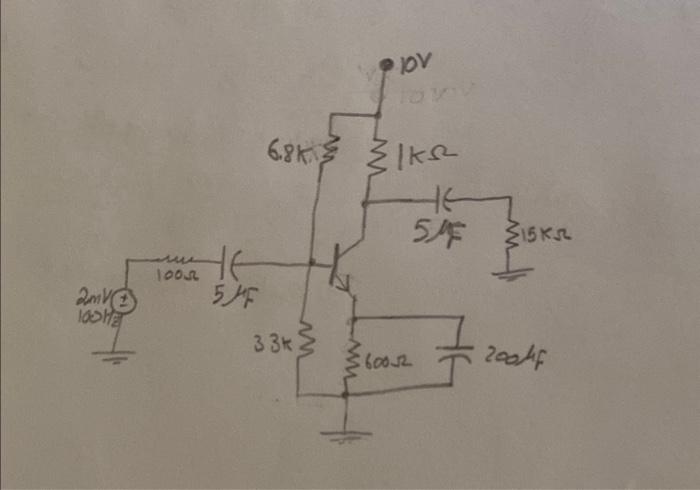 10V
6.8K
1KΩ
5μF
15KΩ
100Ω
5μF
2mV
100Hz
3.3K
600Ω
200μF